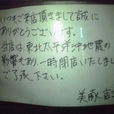 いつもご来店頂きまして誠に
ありがとうございます。
当店は、東北太平洋沖地震の
影響もあり、一時閉店いたしまし
ご了承下さい。
美